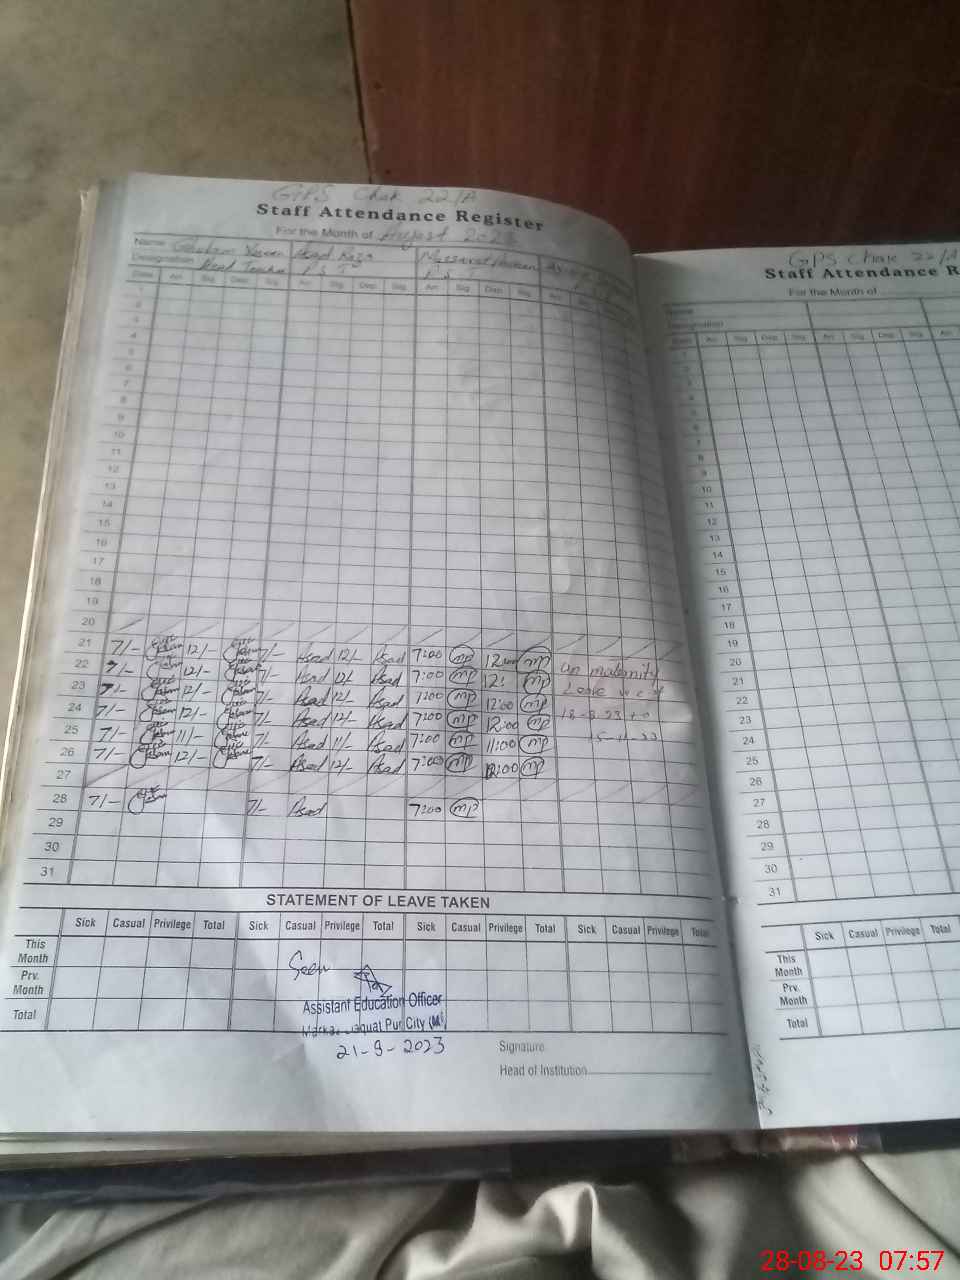 GPS Chak 22/A
Staff Attendance Register
For the Month of August 2023
Name Ghulam Asad Raza Musarat
Designation Head Teacher P S T P S T
Date Arr. Sig. Dep. Sig. Arr. Sig. Dep. Sig. Arr. Sig. Dep. Sig. Arr.
1
2
3
4
5
6
7
8
9
10
11
12
13
14
15
16
17
18
19
20
21 7/- 12/- 7/- Asad 12/- Asad 7:00 mp 12:00 mp
22 7/- 12/- 7/- Asad 12/- Asad 7:00 mp 12: mp on maternity
23 7/- 12/- 7/- Asad 12/- Asad 7:00 mp 12:00 mp Leave w.e.f
24 7/- 12/- 7/- Asad 12/- Asad 7:00 mp 12:00 mp 18-8-23 to
25 7/- 11/- 7/- Asad 11/- Asad 7:00 mp 11:00 mp 15-11-23
26 7/- 12/- 7/- Asad 12/- Asad 7:00 mp 12:00 mp
27
28 7/- 7/- Asad 7:00 mp
29
30
31
STATEMENT OF LEAVE TAKEN
Sick Casual Privilege Total Sick Casual Privilege Total Sick Casual Privilege Total Sick Casual Privilege Total
This Month
Prv. Month
Total
Seen
Assistant Education Officer
Markaz Liaquat Pur City (M)
21-9-2023
Signature
Head of Institution
GPS Chak 22/A
Staff Attendance R
For the Month of
Name
Designation
Date Arr. Sig. Dep. Sig. Arr. Sig. Dep. Sig. Arr.
1
2
3
4
5
6
7
8
9
10
11
12
13
14
15
16
17
18
19
20
21
22
23
24
25
26
27
28
29
30
31
Sick Casual Privilege Total
This Month
Prv. Month
Total
28-08-23 07:57